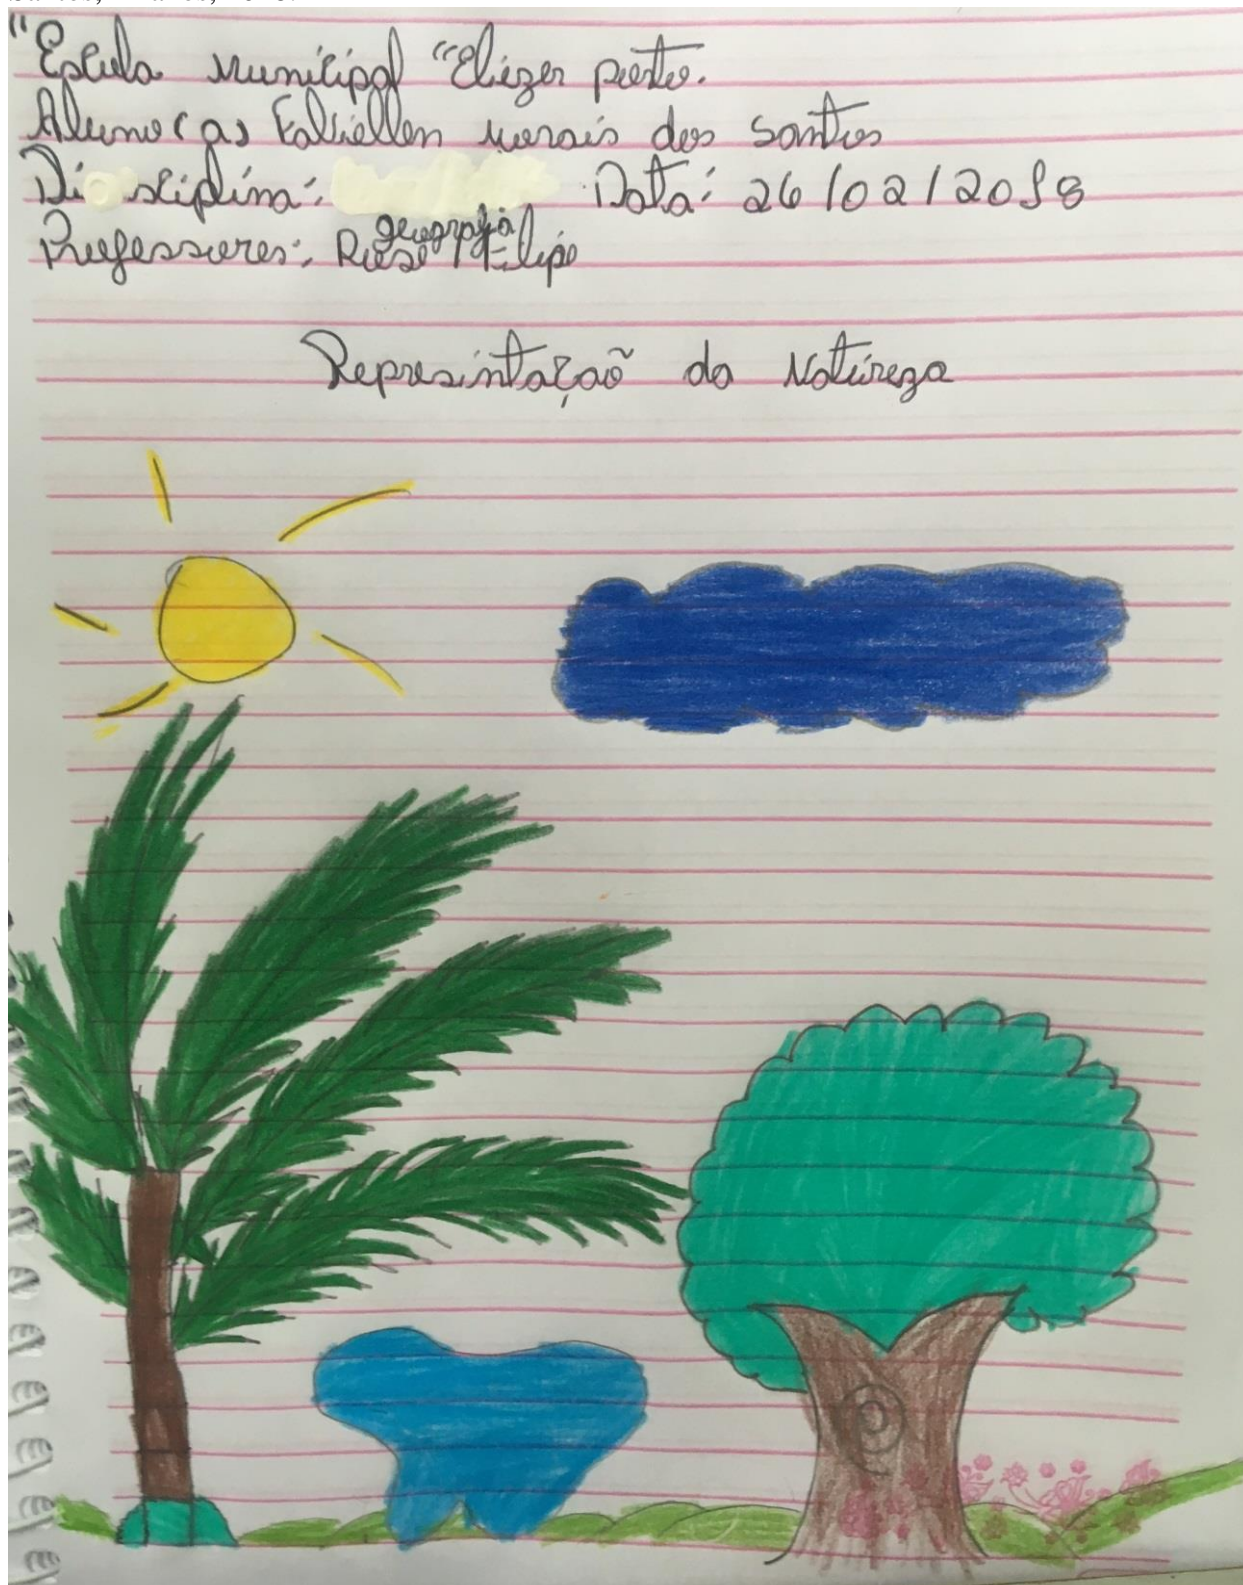 "Escola municipal "Eliezer porto.
Aluno(a) Fabiellen morais dos santos
Disciplina: geografia Data: 26/02/2018
Professores: Rose / Filipe
Represintação da Natureza